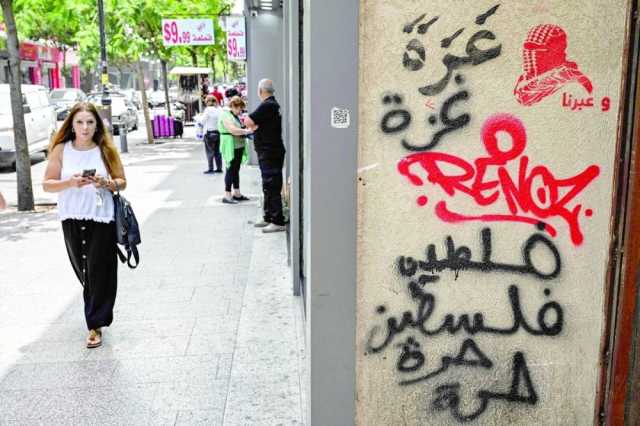 $9.99
$9.99
غزة
غزة
و عبرنا
RENOZ
فلسطين
فلسطين
حرة
حرة